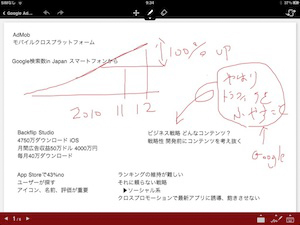 9:39
Google Ad...
AdMob
モバイルクロスプラットフォーム
Google検索数in Japan スマートフォンから
100% up
2010 11 12
Google
Backflip Studio
4750万ダウンロード iOS
月間広告収益50万ドル 4000万円
毎月40万ダウンロード
ビジネス戦略 どんなコンテンツ?
戦略性 開発前にコンテンツを考え抜く
App Storeで43%no
ユーザーが探す
アイコン、名前、評価が重要
ランキングの維持が難しい
それに頼らない戦略
▶ソーシャル系
クロスプロモーションで最新アプリに誘導、飽きさせない
1/8